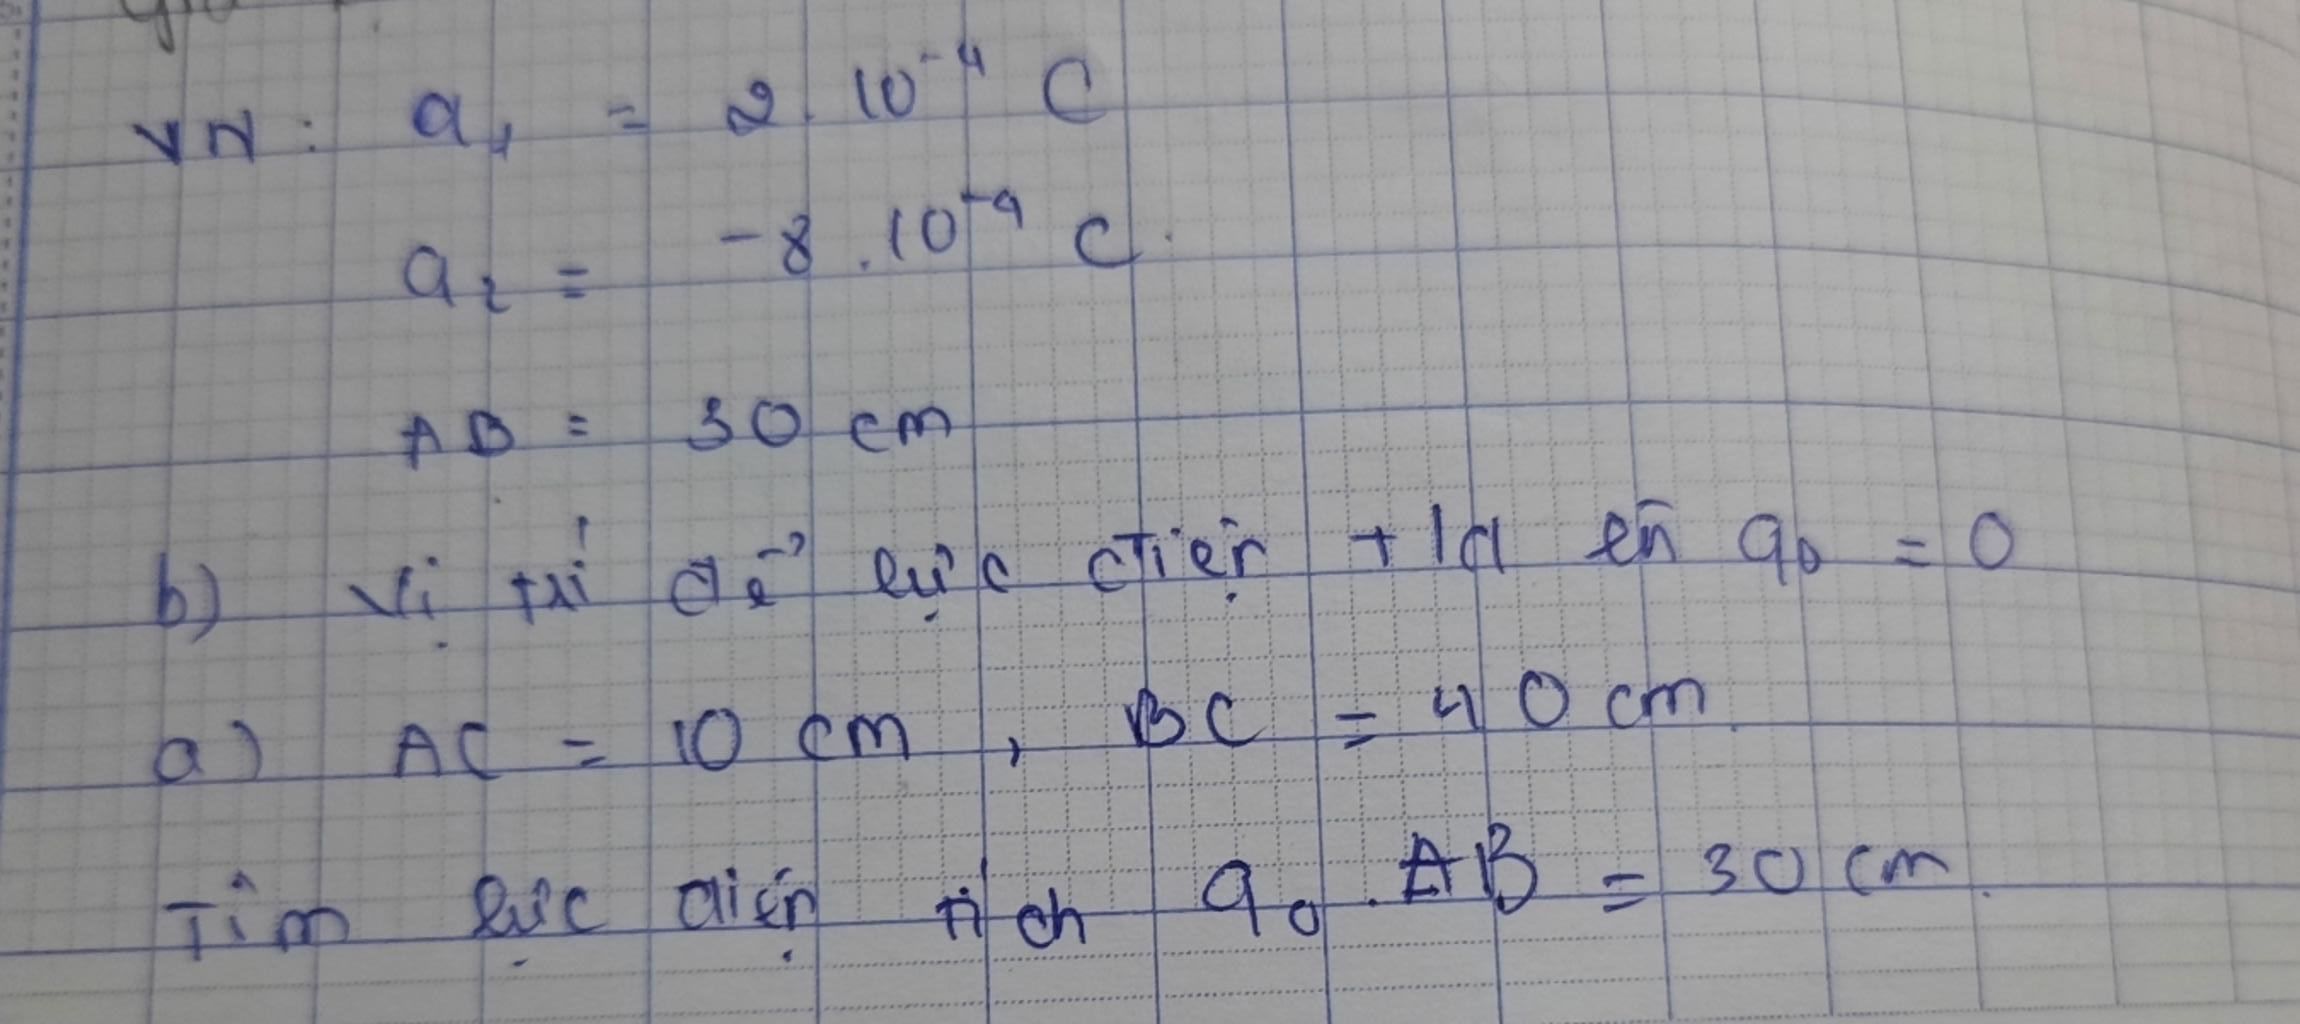 VN: q₁ = 2. 10⁻⁴ C
q₂ = -8 .10⁻⁴ C.
AB = 30 cm
b) Vị trí để lực điện t/d lên q₀ = 0
a) AC = 10 cm , BC = 40 cm.
Tìm lực điện tích q₀. AB = 30 cm.